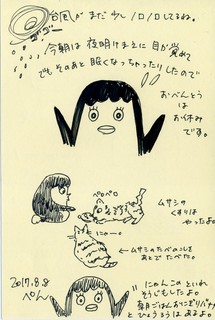 台風がまだ少しノロノロしてるね。
ゴーゴー
今朝は夜明けまえに目が覚めて
でもそのあと眠くなっちゃったりしたので
おべんとう
は
お休み
です。
ペロペロ
ムサシの
くすりは
やったよ。
にゃー。
←ムサシのたべのこしを
あとでたべてた。
2017.8.8
ぺん
にゃんこのといれ
そうじもしたよ。
朝ごはんおにぎりパン
とひょうろうはあるよ。